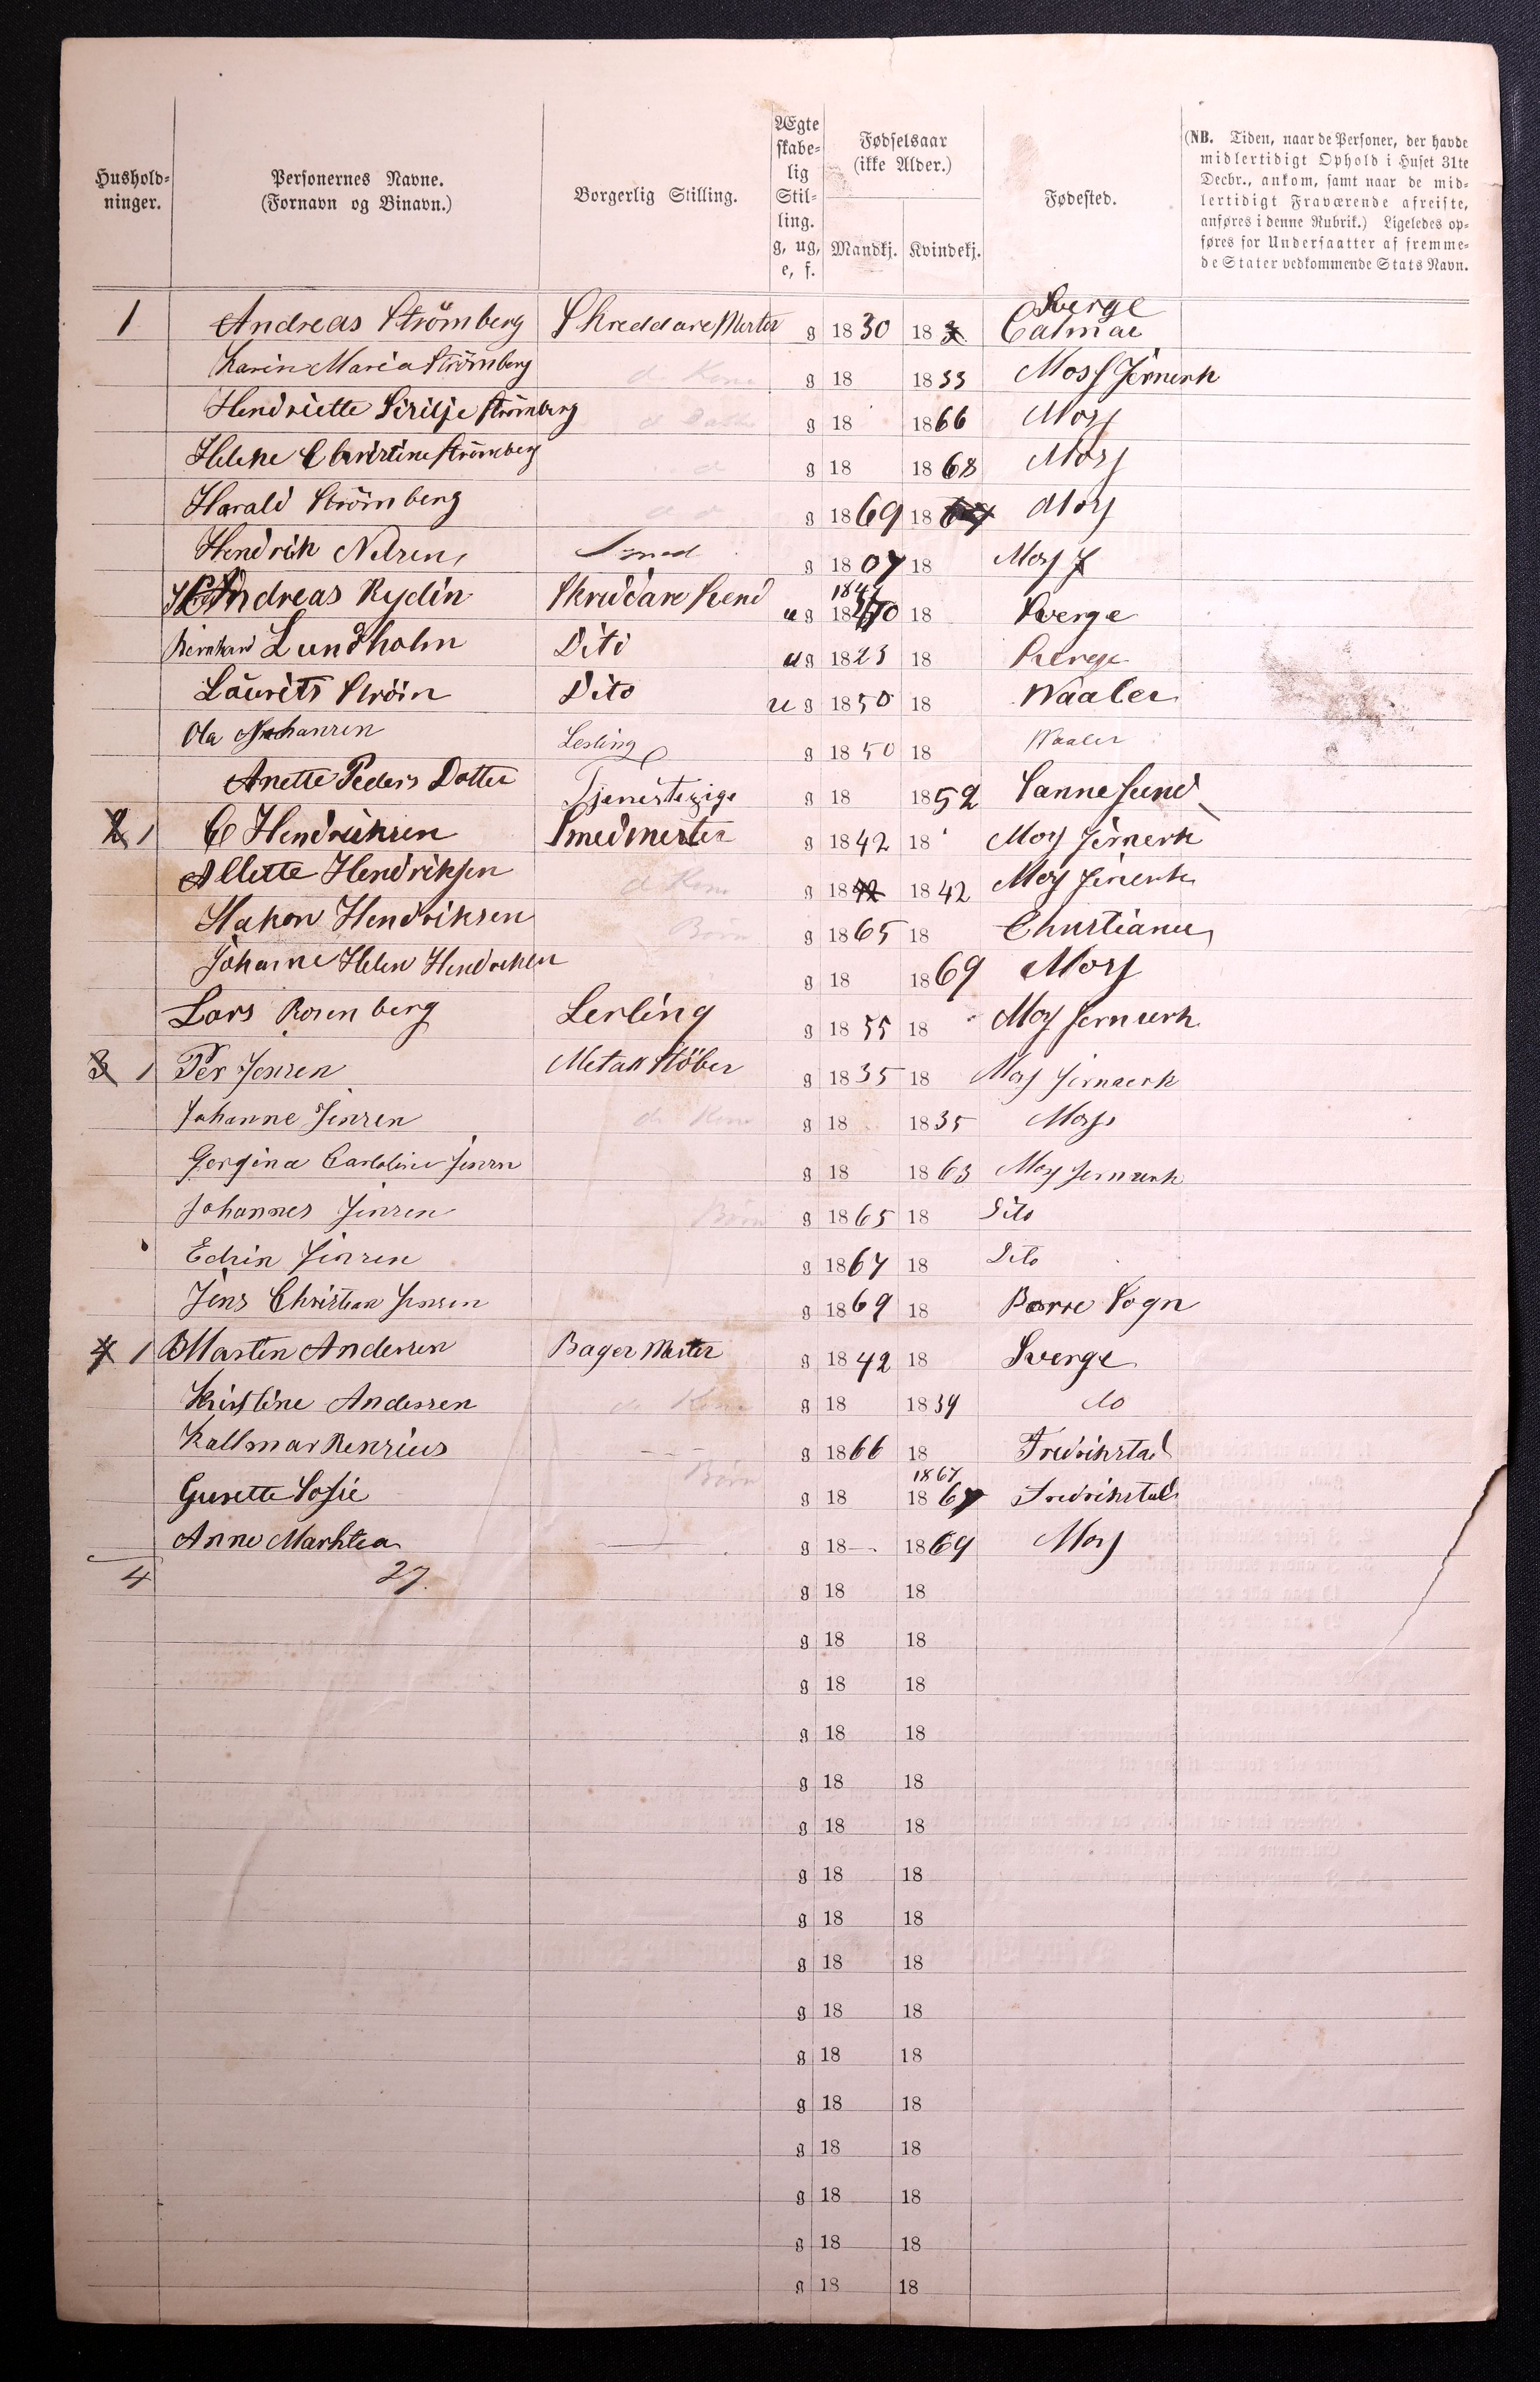 Hushold-
ninger.
Personernes Navne.
(Fornavn og Binavn.)
Borgerlig Stilling.
Ægte
skabe-
lig
Stil-
ling.
g, ug,
e, f.
Fødselsaar
(ikke Alder.)
Mandkj. Kvindekj.
Fødested.
(NB. Tiden, naar de Personer, der havde
midlertidigt Ophold i Huset 31te
Decbr., ankom, samt naar de mid-
lertidigt Fraværende afreiste,
anføres i denne Rubrik.) Ligeledes op-
føres for Undersaatter af fremme-
de Stater vedkommende Stats Navn.
Sverge
1 Andreas Strömberg Skreddare Mester g 1830 18 Calmar
Karin Maria Strömberg d. Kone g 18 1833 Moss Jernverk
Hendriette Sirilje Strömberg d Datter g 18 1866 Moss
Helene Christine Strömberg d g 18 1868 Moss
Harald Strömberg d d g 1869 18 Moss
Hendrik Nelsen Smed g 1807 18 Moss J
1847
Andreas Rydin Skreddare Svend ug 18 18 Sverge
Bernhard Lundholm Dito ug 1823 18 Sverge
Laurits Ström Dito ug 1850 18 Waaler
Ola Johansen Lerling g 1850 18 Waaler
Anette Peders Dotter Tjenestepige g 18 1852 Sannesund
2 1 C Hendriksen Smedmester g 1842 18 Moss Jernverk
Allette Hendriksen d Kone g 1842 1842 Moss Jernverk
Hakon Hendriksen Börn g 1865 18 Christiania
Johanne Helen Hendriksen g 18 1869 Moss
Lars Rosenberg Lerling g 1855 18 Moss Jernverk
3 1 Per Jensen Metall Stöber g 1835 18 Moss Jernverk
Johanne Jensen d. Kone g 18 1835 Moss
Gorgina Caroline Jensen g 18 1863 Moss Jernverk
Johannes Jensen Börn g 1865 18 Dito
Edvin Jensen g 1867 18 Dito
Jens Christian Jensen g 1869 18 Borre Sogn
4 1 Martin Andersen Bager Mester g 1842 18 Sverge
Kristine Andersen d. Kone g 18 1839 do
Kallmar Renrius g 1866 18 Fredrikstad
1867
Gusette Sofie Börn g 18 1867 Fredrikstad
Anne Marktea g 18 1869 Moss
4 27. g 18 18
g 18 18
g 18 18
g 18 18
g 18 18
g 18 18
g 18 18
g 18 18
g 18 18
g 18 18
g 18 18
g 18 18
g 18 18
g 18 18
g 18 18
g 18 18